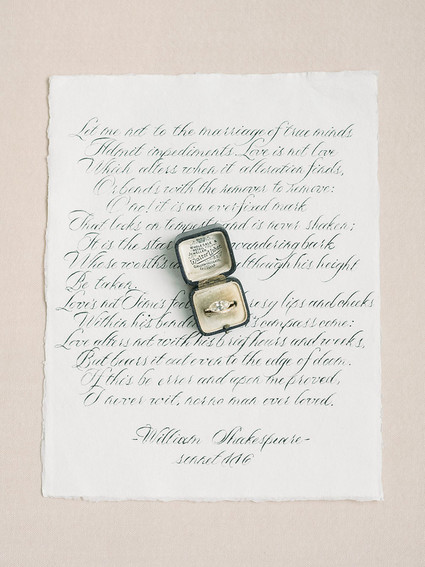 Let me not to the marriage of true minds
Admit impediments. Love is not love
Which alters when it alteration finds,
Or bends with the remover to remove:
O no! it is an ever fixed mark
That looks on tempests and is never shaken;
It is the sta wandering bark
Whose worth's although his height
Be taken.
Love's not Time's foo rosy lips and cheeks
Within his bendi compass come:
Love alters not with his brief hours and weeks,
But bears it out even to the edge of doom.
If this be error and upon me proved,
I never writ, nor no man ever loved.
-William Shakespeare-
sonnet 116